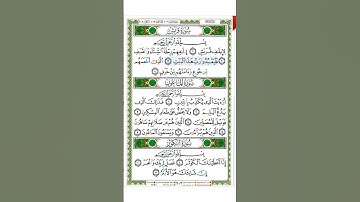 سُورَةُ قُرَيْشٍ
بِسْمِ اللَّهِ الرَّحْمَٰنِ الرَّحِيمِ
لِإِيلَافِ قُرَيْشٍ ۝١ إِيلَافِهِمْ رِحْلَةَ الشِّتَاءِ وَالصَّيْفِ ۝٢
فَلْيَعْبُدُوا رَبَّ هَٰذَا الْبَيْتِ ۝٣ الَّذِي أَطْعَمَهُمْ
مِنْ جُوعٍ وَآمَنَهُمْ مِنْ خَوْفٍ ۝٤
سُورَةُ الْمَاعُونِ
بِسْمِ اللَّهِ الرَّحْمَٰنِ الرَّحِيمِ
أَرَأَيْتَ الَّذِي يُكَذِّبُ بِالدِّينِ ۝١ فَذَٰلِكَ الَّذِي
يَدُعُّ الْيَتِيمَ ۝٢ وَلَا يَحُضُّ عَلَىٰ طَعَامِ الْمِسْكِينِ ۝٣
فَوَيْلٌ لِلْمُصَلِّينَ ۝٤ الَّذِينَ هُمْ عَنْ صَلَاتِهِمْ سَاهُونَ ۝٥
الَّذِينَ هُمْ يُرَاءُونَ ۝٦ وَيَمْنَعُونَ الْمَاعُونَ ۝٧
سُورَةُ الْكَوْثَرِ
بِسْمِ اللَّهِ الرَّحْمَٰنِ الرَّحِيمِ
إِنَّا أَعْطَيْنَاكَ الْكَوْثَرَ ۝١ فَصَلِّ لِرَبِّكَ وَانْحَرْ ۝٢
إِنَّ شَانِئَكَ هُوَ الْأَبْتَرُ ۝٣